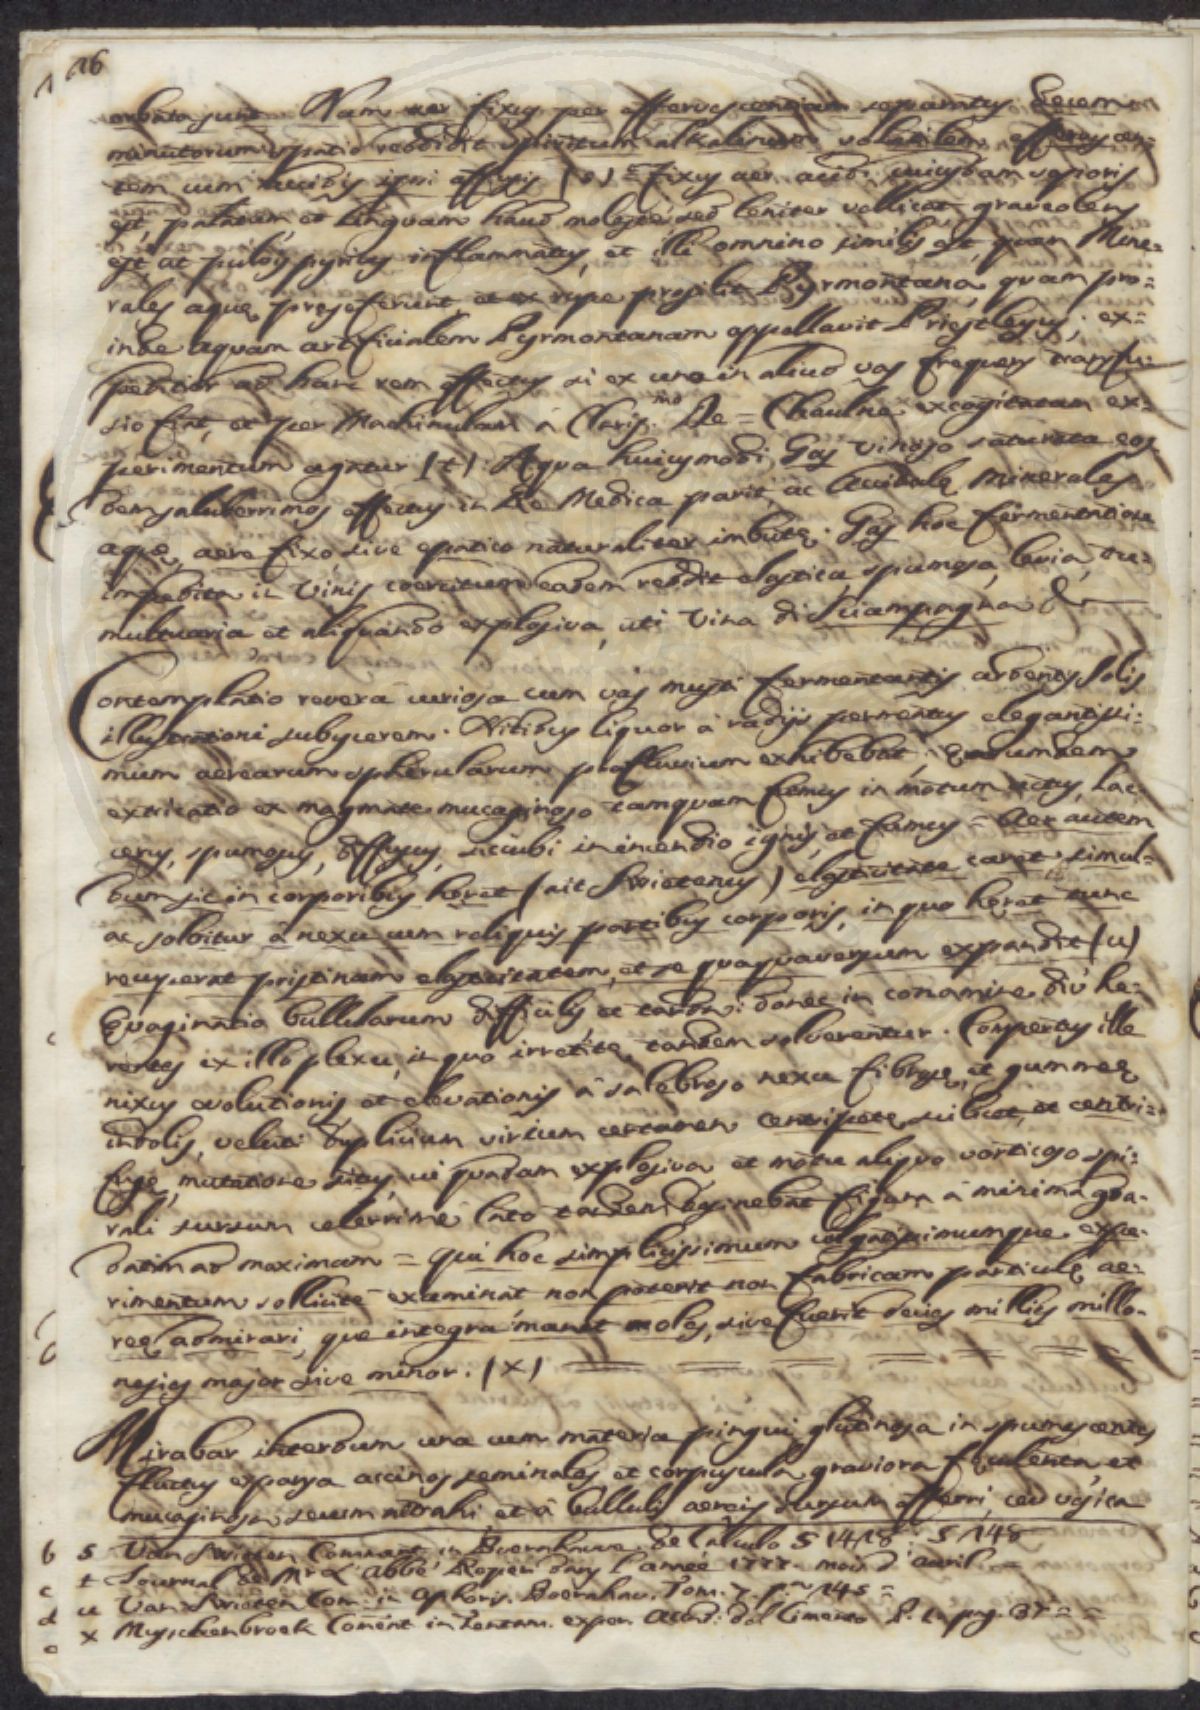 16
orbata sunt. Nam aer fixus per effervescentiam separatus decem
minutorum spatio reddidit spiritum alkalinum volatilem efferves cen-
tem cum acidis (s) = Fixus aer acidi cuiusdam vaporis
est, palatum, et linguam haud moleste sed leniter vellicat, graveolens
est ut pulvis pyrius inflammatus, et illi omnino similis est, quam Mine-
rales aquę pręseferunt, et ex rupe prosilit Pyrmontana, quam pro-
inde aquam artificialem Pyrmontanam appellavit Priestleyus; ex=
peditior ad hanc rem effectus si ex uno in aliud vas frequens transfu-
sio fiat, et per Machinulam à Clariss.mo De = Chaulne excogitatam ex-
perimentum agatur (t). Aqua huiusmodi Gas vinoso saturata eos-
dem saluberrimos effectus in Re Medica parit, ac Acidulę Minerales
aquę aere fixo sive spatico naturaliter imbutę. Gas hoc fermentatione
in Vinis coercitum eadem reddit elastica, spumosa, levia, tu-
multuaria et aliquando explosiva, uti Vina di Sciampagna &
Contemplatio reverà curiosa cum vas musti fermentantis ardentis Solis
illustrationi subijcerem. Nitidus liquor à radijs permeatus elegantissi-
mum aerearum sphęrularum profluvium exhibebat. Earumdem
extricatio ex magmate mucaginoso tamquam fumus in motum actus, lac-
cerus, spumosus, diffusus, sicubi in incendio ignis, et fumus = Aer autem
dum sic in corporibus hęret (ait Swietenus) elasticitate caret simul-
ac solvitur à nexu cum reliquis partibus corporis, in quo hęret tunc
recuperat pristinam elasticitatem, et se quaquaversum expandit (u)
Evaginatio bullularum difficilis et tarda: donec in conamine diù hę-
rentes ex illo plexu, in quo irretitę, tandem solverentur. Compertus ille
nixus evolutionis et elevationis à salebroso nexu fibrosę, et gummeę
indolis, veluti duplicium virium certamen centripetę scilicet, et centri-
fugę, mutatione situs, vi quadam explosiva et motu aliquo vorticoso spi-
rali sursum celerrimè lato tandem desinebat figura à minima gra-
datim ad maximam = qui hoc simplicissimum vulgatissimumque expe-
rimentum sollicitè examinat non poterit non fabricam particulę ae-
reę admirari, quę integra manet moles, sive fuerit decies millies millo-
nesies major sive minor. (x)
Mirabar interdum una cum materia pingui glutinosa in spumescentes
fluctus exparsa accinos seminales et corpuscula graviora, fęculenta, et
mucaginosa secum attrahi et à bullulis aereis sursum efferri, ceu vesica
s Van Swieten Comment. in Boernhave. de Calculo § 1418. § 148
t Journal de Mr. l'abbé Rozier dans l'année 1777. mois d'avril. =
u Van Swieten Com. in Aphoris. Boernhav. Tom. 7. p. 145 =
x Musschenbroek Coment. in Tentam. exper. Acad. del Cimento P. pag. 37 = =